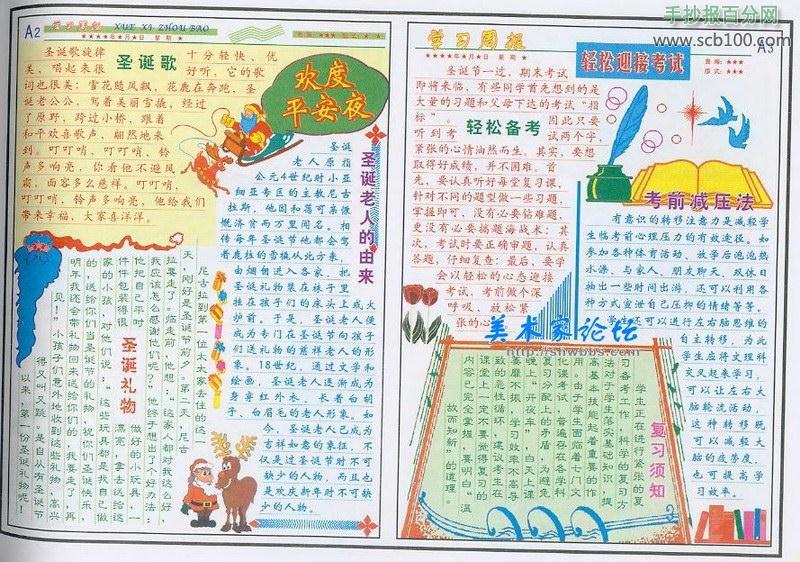 手抄报百分网
www.scb100.com
A2
XUE XI ZHOU BAO
圣诞歌
圣诞歌旋律
十分轻快、优
美，唱起来很
好听，它的歌
词也很美：雪花随风飘，花鹿在奔跑，圣
诞老公公，驾着美丽雪撬，经过
了原野，跨过小桥，跟着
和平欢喜歌声，翩然地来
到。叮叮哨，叮叮哨，铃
声多响亮，你看他不避风
霜，面容多么慈祥。叮叮哨，
叮叮哨，铃声多响亮，他给我们
带来幸福，大家喜洋洋。
欢度
平安夜
圣诞老人的由来
圣诞
老人原指
公元4世纪时小亚
细亚专区的主教尼古
拉斯，他因和蔼可亲慷
慨济贫而万里闻名。相
传每年圣诞节他都会驾
着鹿拉的雪橇从北方来，
由烟囱进入各家，把
圣诞礼物装在袜子里
挂在孩子们的床头上或大
炉前。于是，圣诞老人便
成为专门在圣诞节向孩子
们送礼物的慈祥老人的形
象。18世纪，通过文学和
绘画，圣诞老人逐渐成为
身穿红外衣、长着白胡
子、白眉毛的老人形象。如
今，圣诞老人已成为
吉祥如意的象征，不
仅是过圣诞节时不可
缺少的人物，而且也
是欢庆新年时不可缺
少的人物。
圣诞礼物
尼古拉到第一位太太家去住的这一
天，刚好是圣诞节前夕，第二天，尼古
拉要走了，临走前，他想：“这家人都对我这么好，
我应该怎么感谢他们呢？”他终于想出了个好办法：
他把自己平时
做好的小玩具，一
件件包装得很
漂亮，拿去送给这
家的小孩，对他们说：“这些玩具都是我自己做
的，送给你们当圣诞节的礼物，祝你们圣诞快乐，
明年我还会带礼物回来送给你们的，我要走了，再
见！”小孩子们意外地收到这些礼物，高兴
得又叫又跳。是自从有圣诞节
以来，第一份圣诞礼物呢！
学习周报
A3
轻松迎接考试
轻松备考
圣诞节一过，期末考试
即将来临，有些同学首先想到的是
大量的习题和父母下达的考试“指
标”。
因此只要
听到考
试两个字，
紧张的心情油然而生。其实，要想
取得好成绩，并不困难。首
先，要认真听好每堂复习课，
针对不同的题型做一些习题，
掌握即可，没有必要钻难题，
更没有必要搞题海战术：其
次，考试时要正确审题，认真
答题，仔细复查：最后，要学
会以轻松的心态迎接
考试，考前做个深
呼吸，放松紧
张的心
考前减压法
有意识的转移注意力是减轻学
生临考前心理压力的有效途径。如
参加各种体育活动，放学后泡泡热
水澡，与家人、朋友聊天，双休日
抽出一些时间出游，还可以利用各
种方式宣泄自己压抑的情绪等等。
学生还可以进行左右脑思维的
自主转移，为此
学生应将文理科
交叉起来学习，
可以让左右大
脑轮流活动，
这种转移既
可以减轻大
脑的疲劳度，
也可提高学
习效率。
美术家论坛
http://shwbbs.com
复习须知
学生正在进行紧张的复
习备考工作，科学的复习方
法对于学生落实基础知识，提
高基本技能起着重要的作
用，由于学生面临着七门文
化课考试，普遍存在各学科
复习分配上的矛盾，为避免
晚上“开夜车”，白天上课
萎靡不振，学习效率不高导
致的恶性循环，建议考生在
课堂上一定不要觉得复习的
内容已完全掌握，要明白“温
故而知新”的道理。